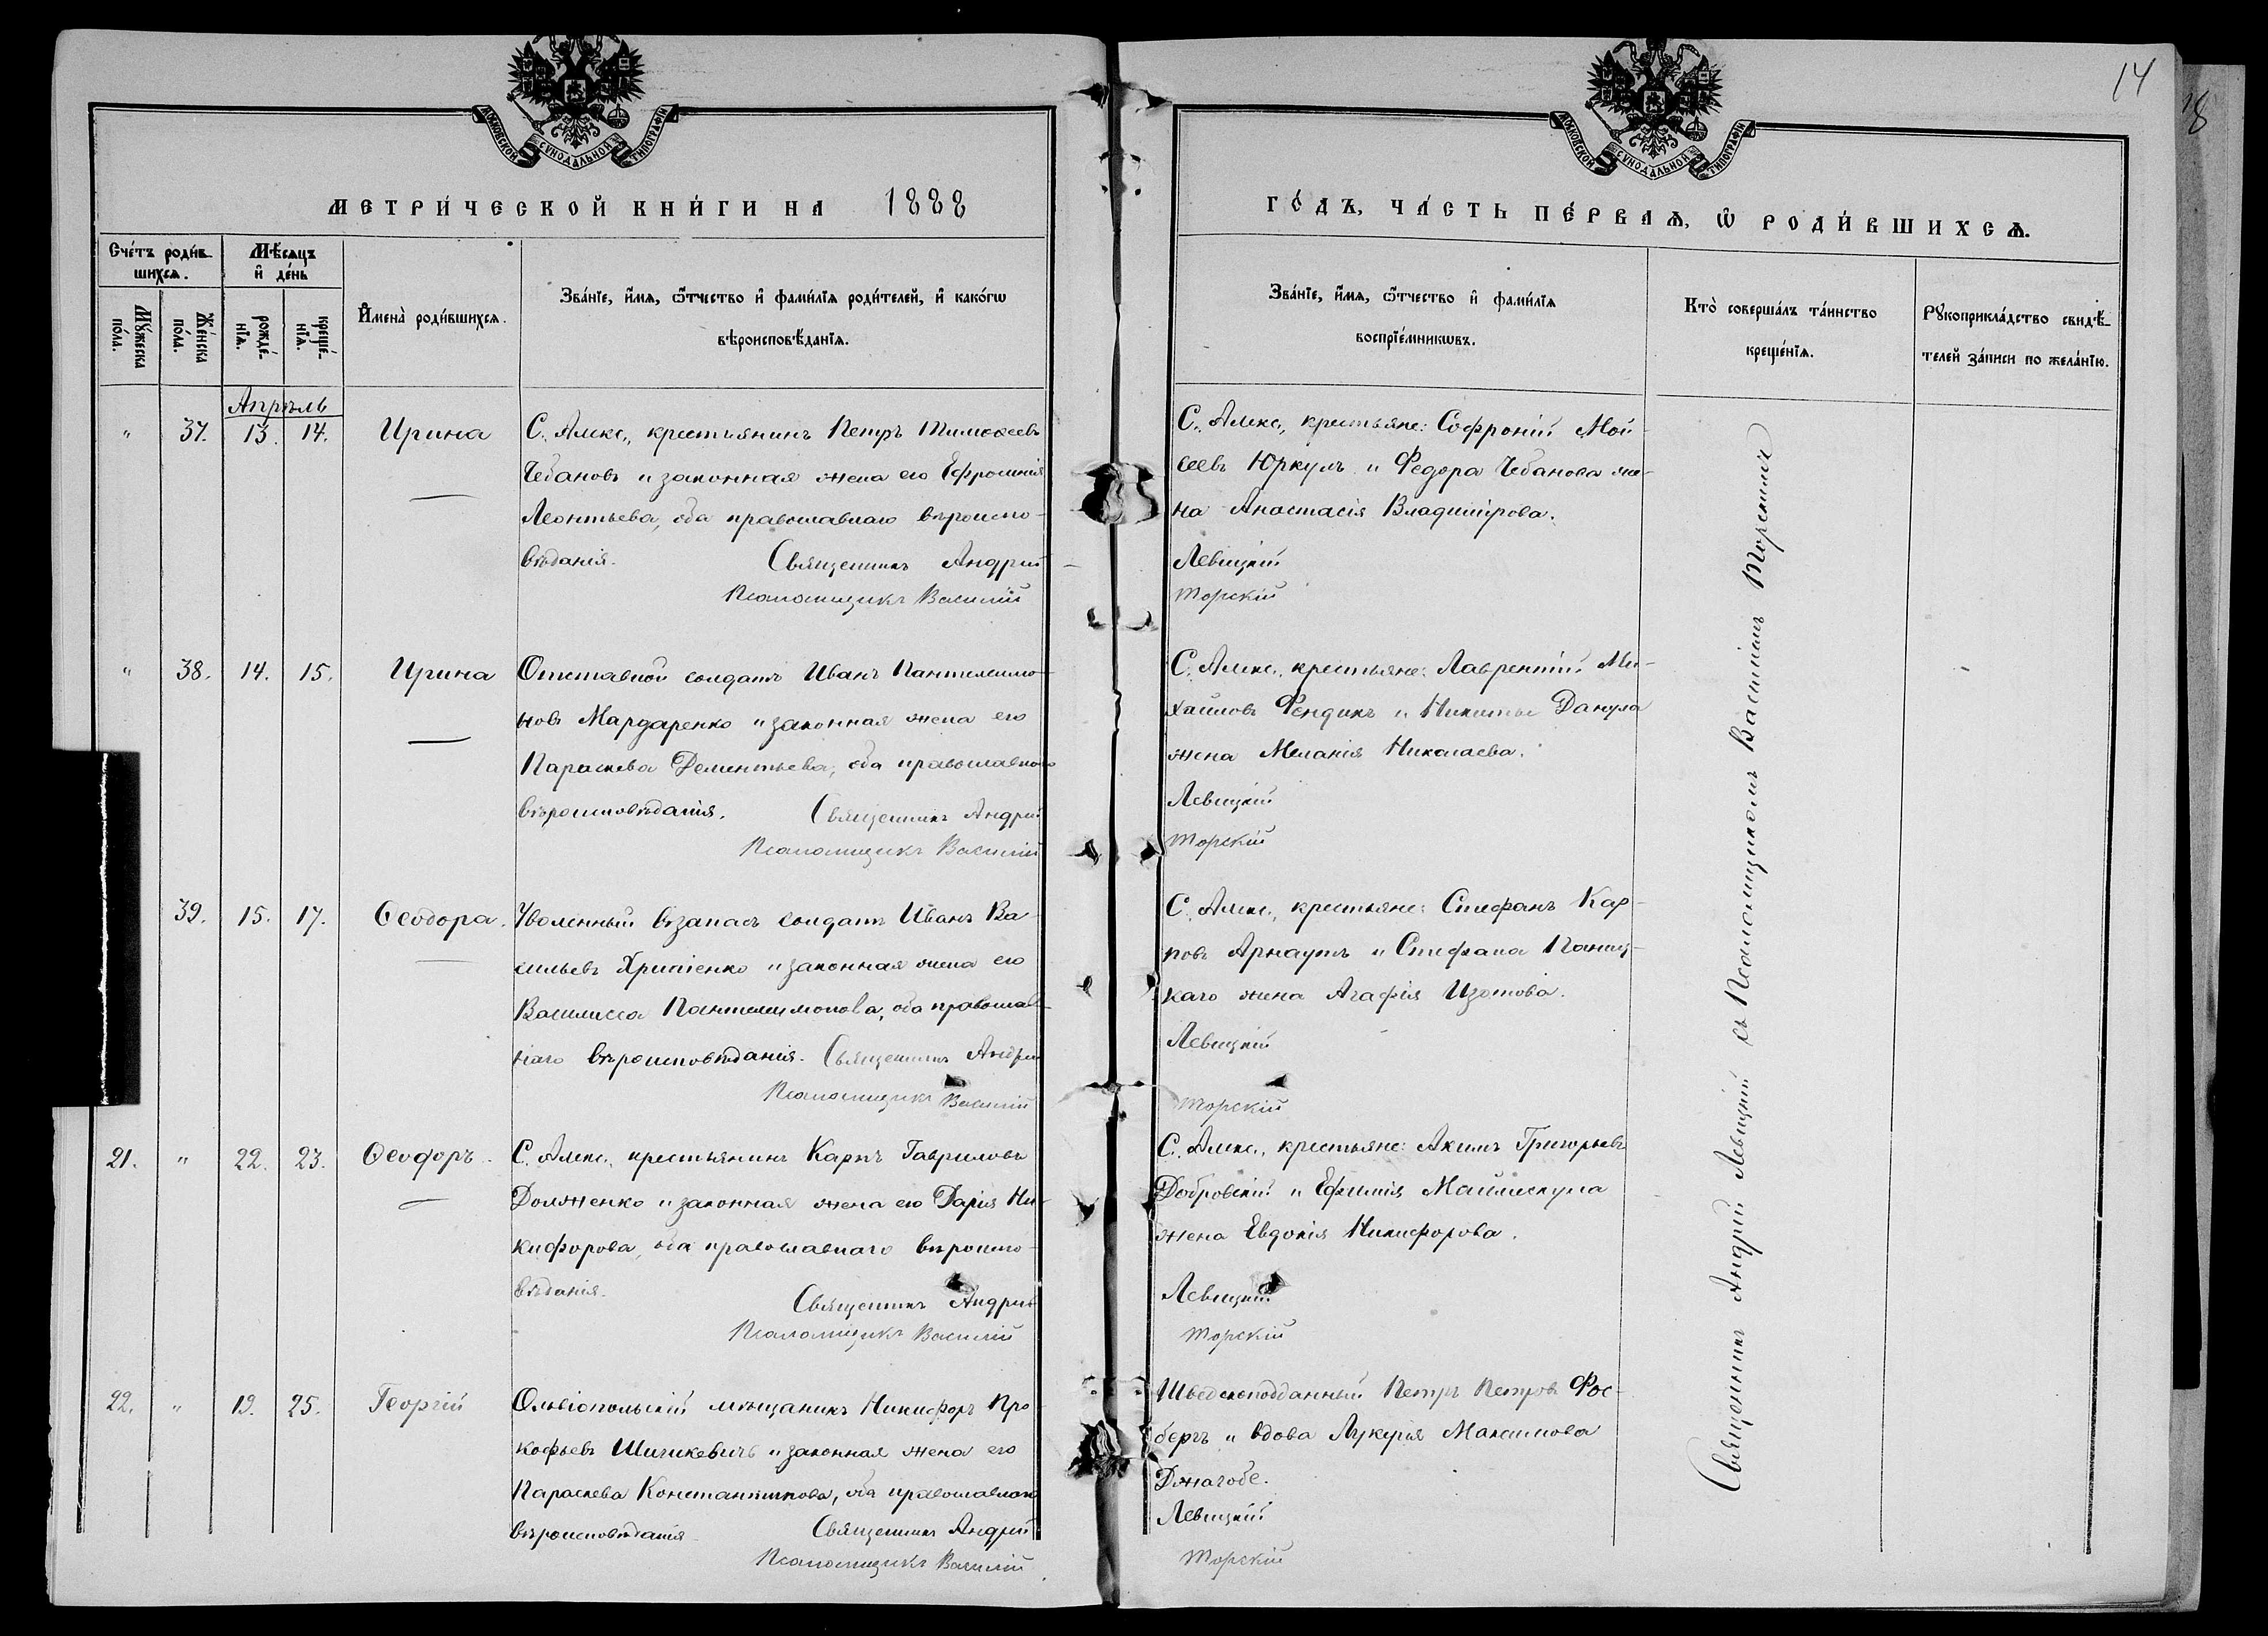 14
18
МОСКОВСКОЙ СѴНОДАЛЬНОЙ ТИПОГРАФІИ
МОСКОВСКОЙ СѴНОДАЛЬНОЙ ТИПОГРАФІИ
МЕТРИ́ЧЕСКОЙ КНИ́ГИ НА 1888
ГО́ДЪ, ЧА́СТЬ ПЕ́РВАѦ, Ѡ҆ РОДИ́ВШИХСѦ.
Сче́тъ роди́вшихсѧ.
Мꙋ́жеска по́ла.
Же́нска по́ла.
Мѣ́сѧцъ и҆ де́нь
рожде́нїѧ.
креще́нїѧ.
И҆мена̀ роди́вшихсѧ.
Зва́нїе, и҆́мѧ, ѻ҆́тчество и҆ фамѝлїѧ роди́телей, и҆ како́гѡ
вѣроисповѣ́данїѧ.
Зва́нїе, и҆́мѧ, ѻ҆́тчество и҆ фамѝлїѧ
воспрїе́мникѡвъ.
Кто̀ соверша́лъ та́инство
креще́нїѧ.
Рꙋкоприкла́дство свидѣ́-
телей за́писи по жела́нїю.
Апрѣль
" 37. 13. 14. Ирина
С. Алекс., крестьянинъ Петръ Тимоѳеевъ
Чебановъ и законная жена его Ефросинія
Леонтьева, оба православнаго вѣроиспо-
вѣданія. Священникъ Андрей
Псаломщикъ Василій
С. Алекс., крестьяне: Софроній Мои-
сеевъ Юркулъ и Федора Чебанова же-
на Анастасія Владимірова.
Левицкій
Торскій
" 38. 14. 15. Ирина
Отставной солдатъ Иванъ Пантелеимо-
новъ Мардаренко и законная жена его
Параскева Дементьева, оба православнаго
вѣроисповѣданія. Священникъ Андрей
Псаломщикъ Василій
С. Алекс., крестьяне: Лаврентій Ми-
хайловъ Фендикъ и Никиты Данула
жена Меланія Николаева.
Левицкій
Торскій
39. 15. 17. Ѳеодора.
Уволенный въ запасъ солдатъ Иванъ Ва-
сильевъ и законная жена его
Василисса Пантелеимонова, оба православ-
наго вѣроисповѣданія. Священникъ Андрей
Псаломщикъ Василій
С. Алекс., крестьяне: Стефанъ Кар-
повъ Арнаутъ и Стефана Паниц-
каго жена Агафія Изотова.
Левицкій
Торскій
21. " 22. 23. Ѳеодоръ.
С. Алекс., крестьянинъ Карпъ Гавриловъ
Долженко и законная жена его Дарія Ни-
кифорова, оба православнаго вѣроиспо-
вѣданія.
Священникъ Андрей
Псаломщикъ Василій
С. Алекс., крестьяне: Акимъ Григорьевъ
Добровскій и Ефимія
жена Евдокія Никифорова.
Левицкій
Торскій
22. " 19. 25. Георгій
Ольвіопольскій мѣщанинъ Никифоръ Про-
кофьевъ и законная жена его
Параскева Константинова, оба православнаго
вѣроисповѣданія. Священникъ Андрей
Псаломщикъ Василій
Шведскоподданный Петръ Петровъ Фос-
бергъ и вдова Лукерія Максимова
Джагобе.
Левицкій
Торскій
Священникъ Андрей Левицкій съ Псаломщикомъ Василіемъ Торскимъ